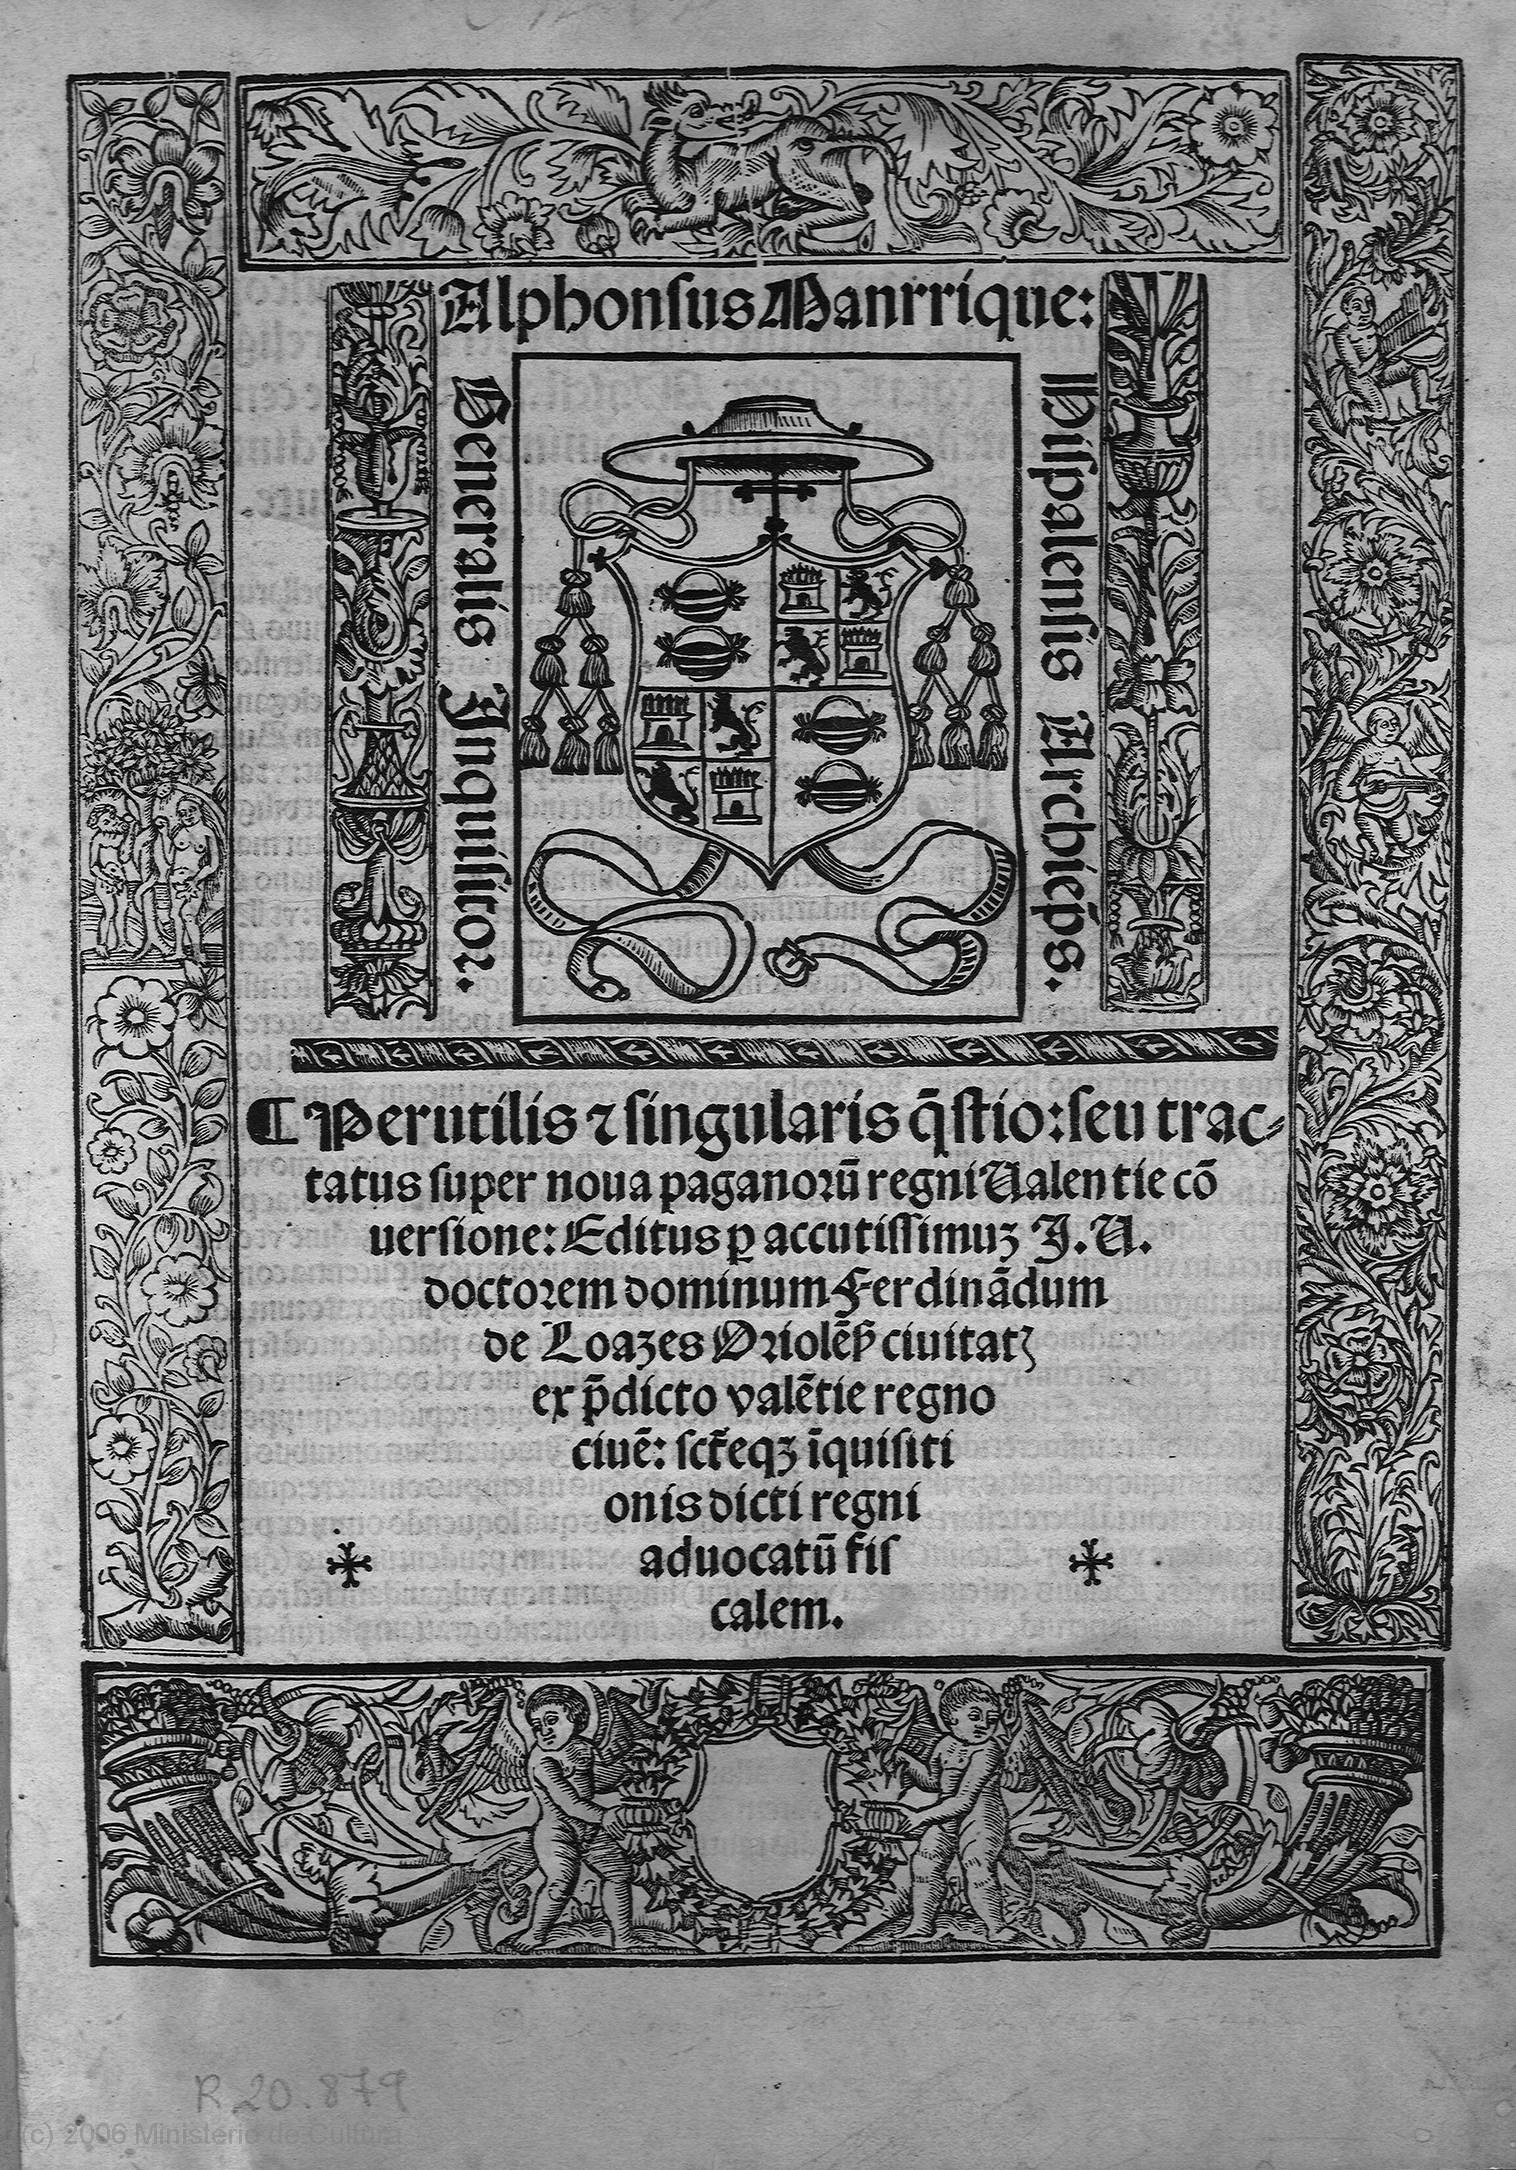 Alphonsus Manrrique:
Hispalensis Archiep̄s.
Generalis Inquisitor.
¶ Perutilis ⁊ singularis q̄stio: seu trac-
tatus super noua paganorū regni Ualentie cō
uersione: Editus ꝑ accutissimuꝫ J. U.
doctorem dominum Ferdinādum
de Loazes Oriolēẜ ciuitatꝫ
ex p̄dicto valētie regno
ciuē: sct̄eqꝫ īquisiti
onis dicti regni
aduocatū fis
calem.
R.20.879
(c) 2006 Ministerio de Cultura